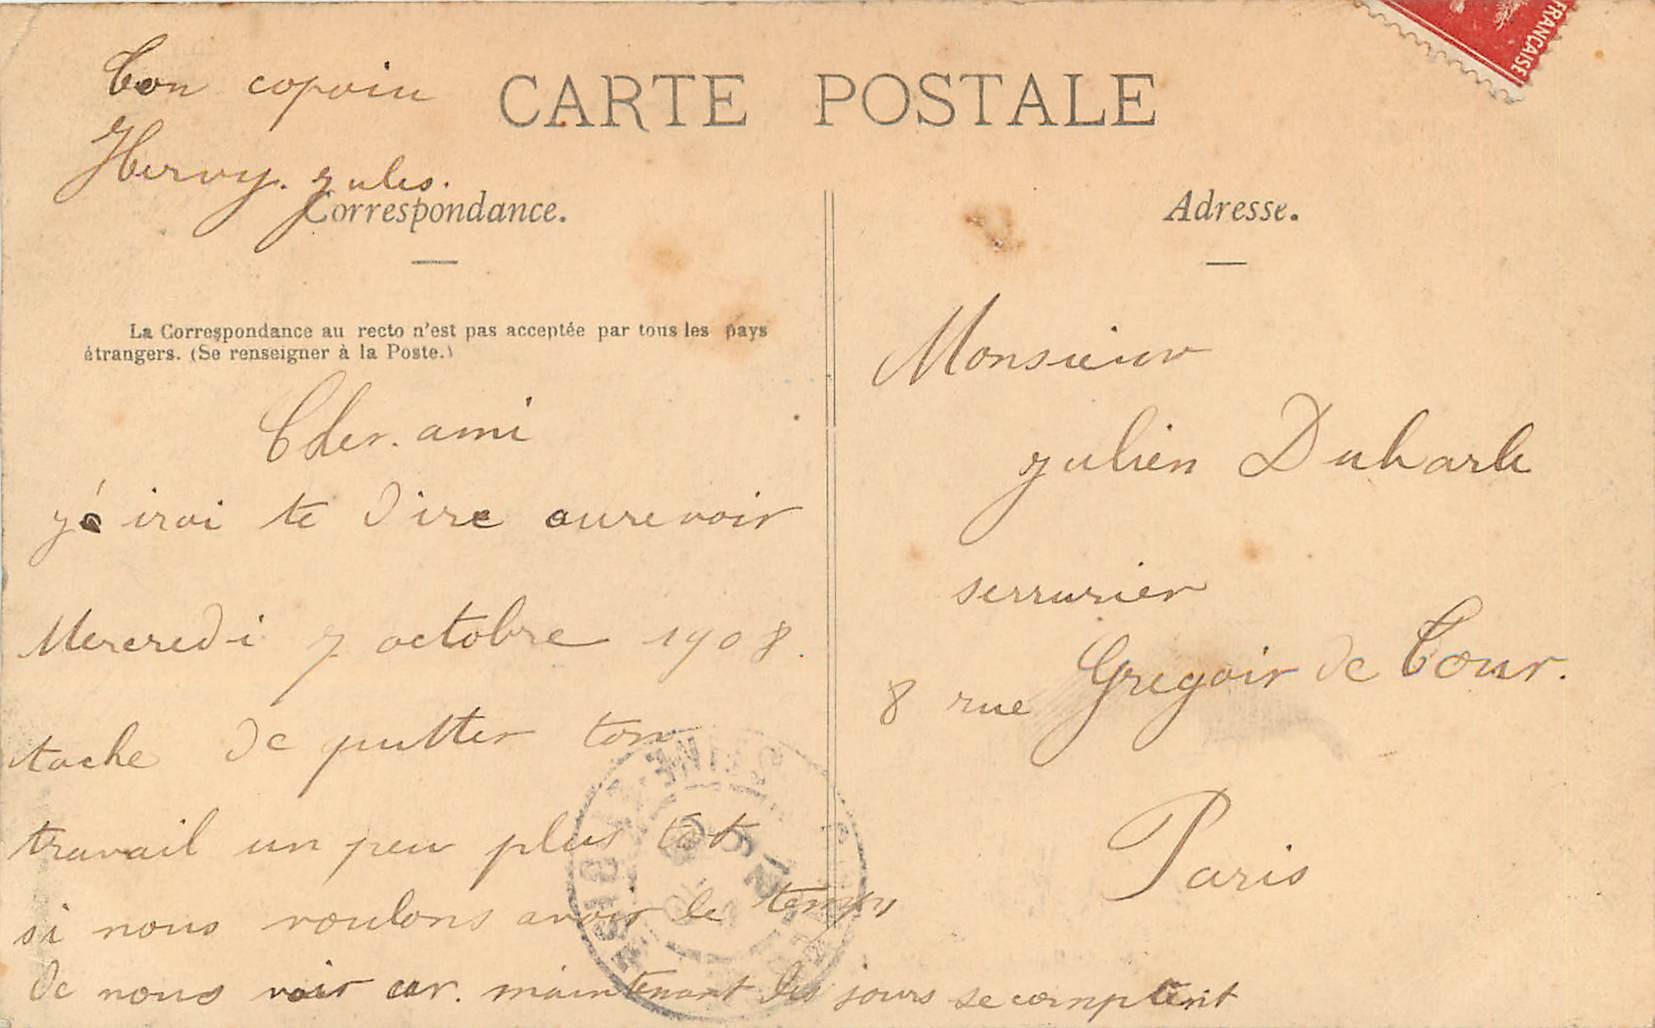 ton copain
Hervy. jules.
CARTE POSTALE
FRANÇAISE
Correspondance.
La Correspondance au recto n'est pas acceptée par tous les pays
étrangers. (Se renseigner à la Poste.)
Cher. ami
irai te dire aurevoir
Mercredi 7 octobre 1908.
tache de quitter ton
travail un peu plus tot
si nous voulons avoir le temps
de nous voir car. maintenant les jours se comptent
Adresse.
Monsieur
julien Duharle
serrurier
8 rue Gregoir de Tour.
Paris